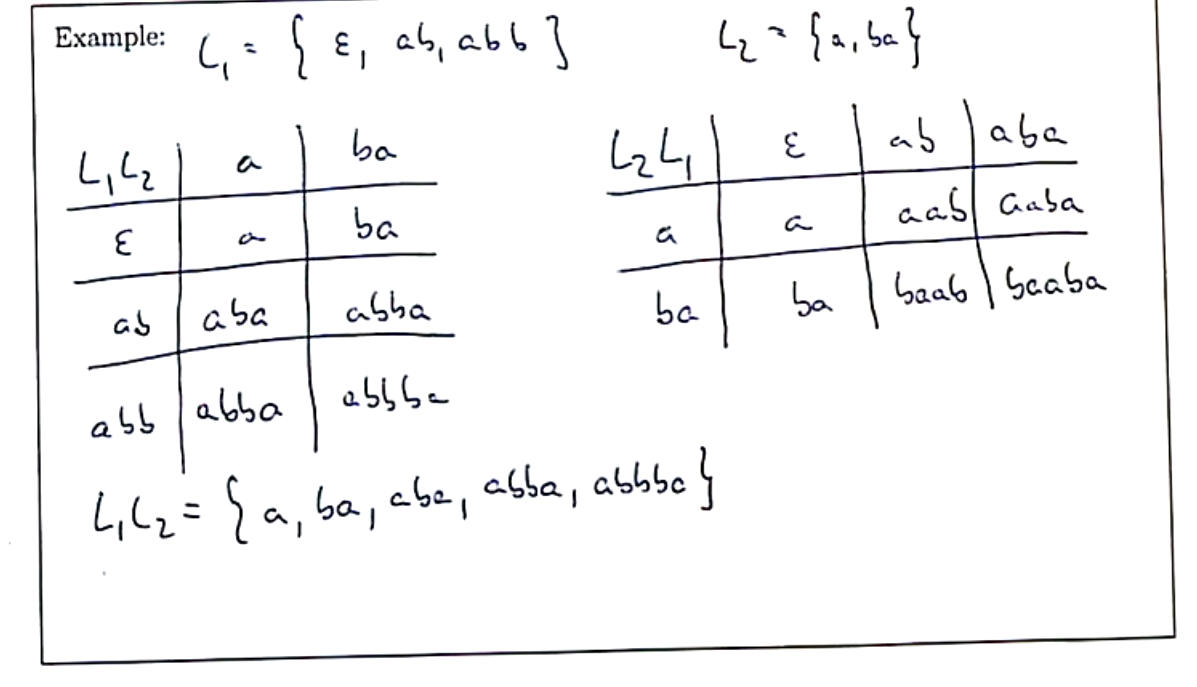 Example: L₁ = { ε, ab, abb } L₂ = {a, ba}
L₁L₂ | a | ba
ε | a | ba
ab | aba | abba
abb | abba | abbba
L₂L₁ | ε | ab | aba
a | a | aab | aaba
ba | ba | baab | baaba
L₁L₂ = { a, ba, aba, abba, abbba }